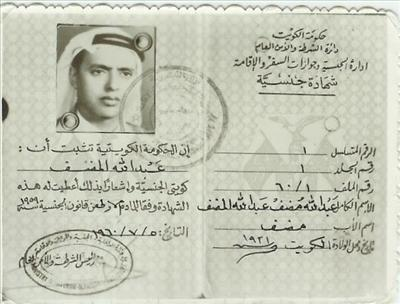 حكومة الكويت
دائرة الشرطة والأمن العام
إدارة الجنسية وجوازات السفر والإقامة
شهادة جنسية
الرقم المتسلسل ١
رقم الجلد ١
رقم الملف ٦٠/١
الاسم الكامل عبدالله مضف عبدالله المضف
اسم الأب مضف
تاريخ ومحل الولادة الكويت ١٩٣١
إن الحكومة الكويتية تثبت أن:
عبدالله المضف
كويتي الجنسية وإشعارا بذلك أعطيت له هذه
الشهادة وفقا للمادة من قانون الجنسية سنة ١٩٥٩
التاريخ: ٩٦٠/٧/٥
رئيس الشرطة والأمن العام